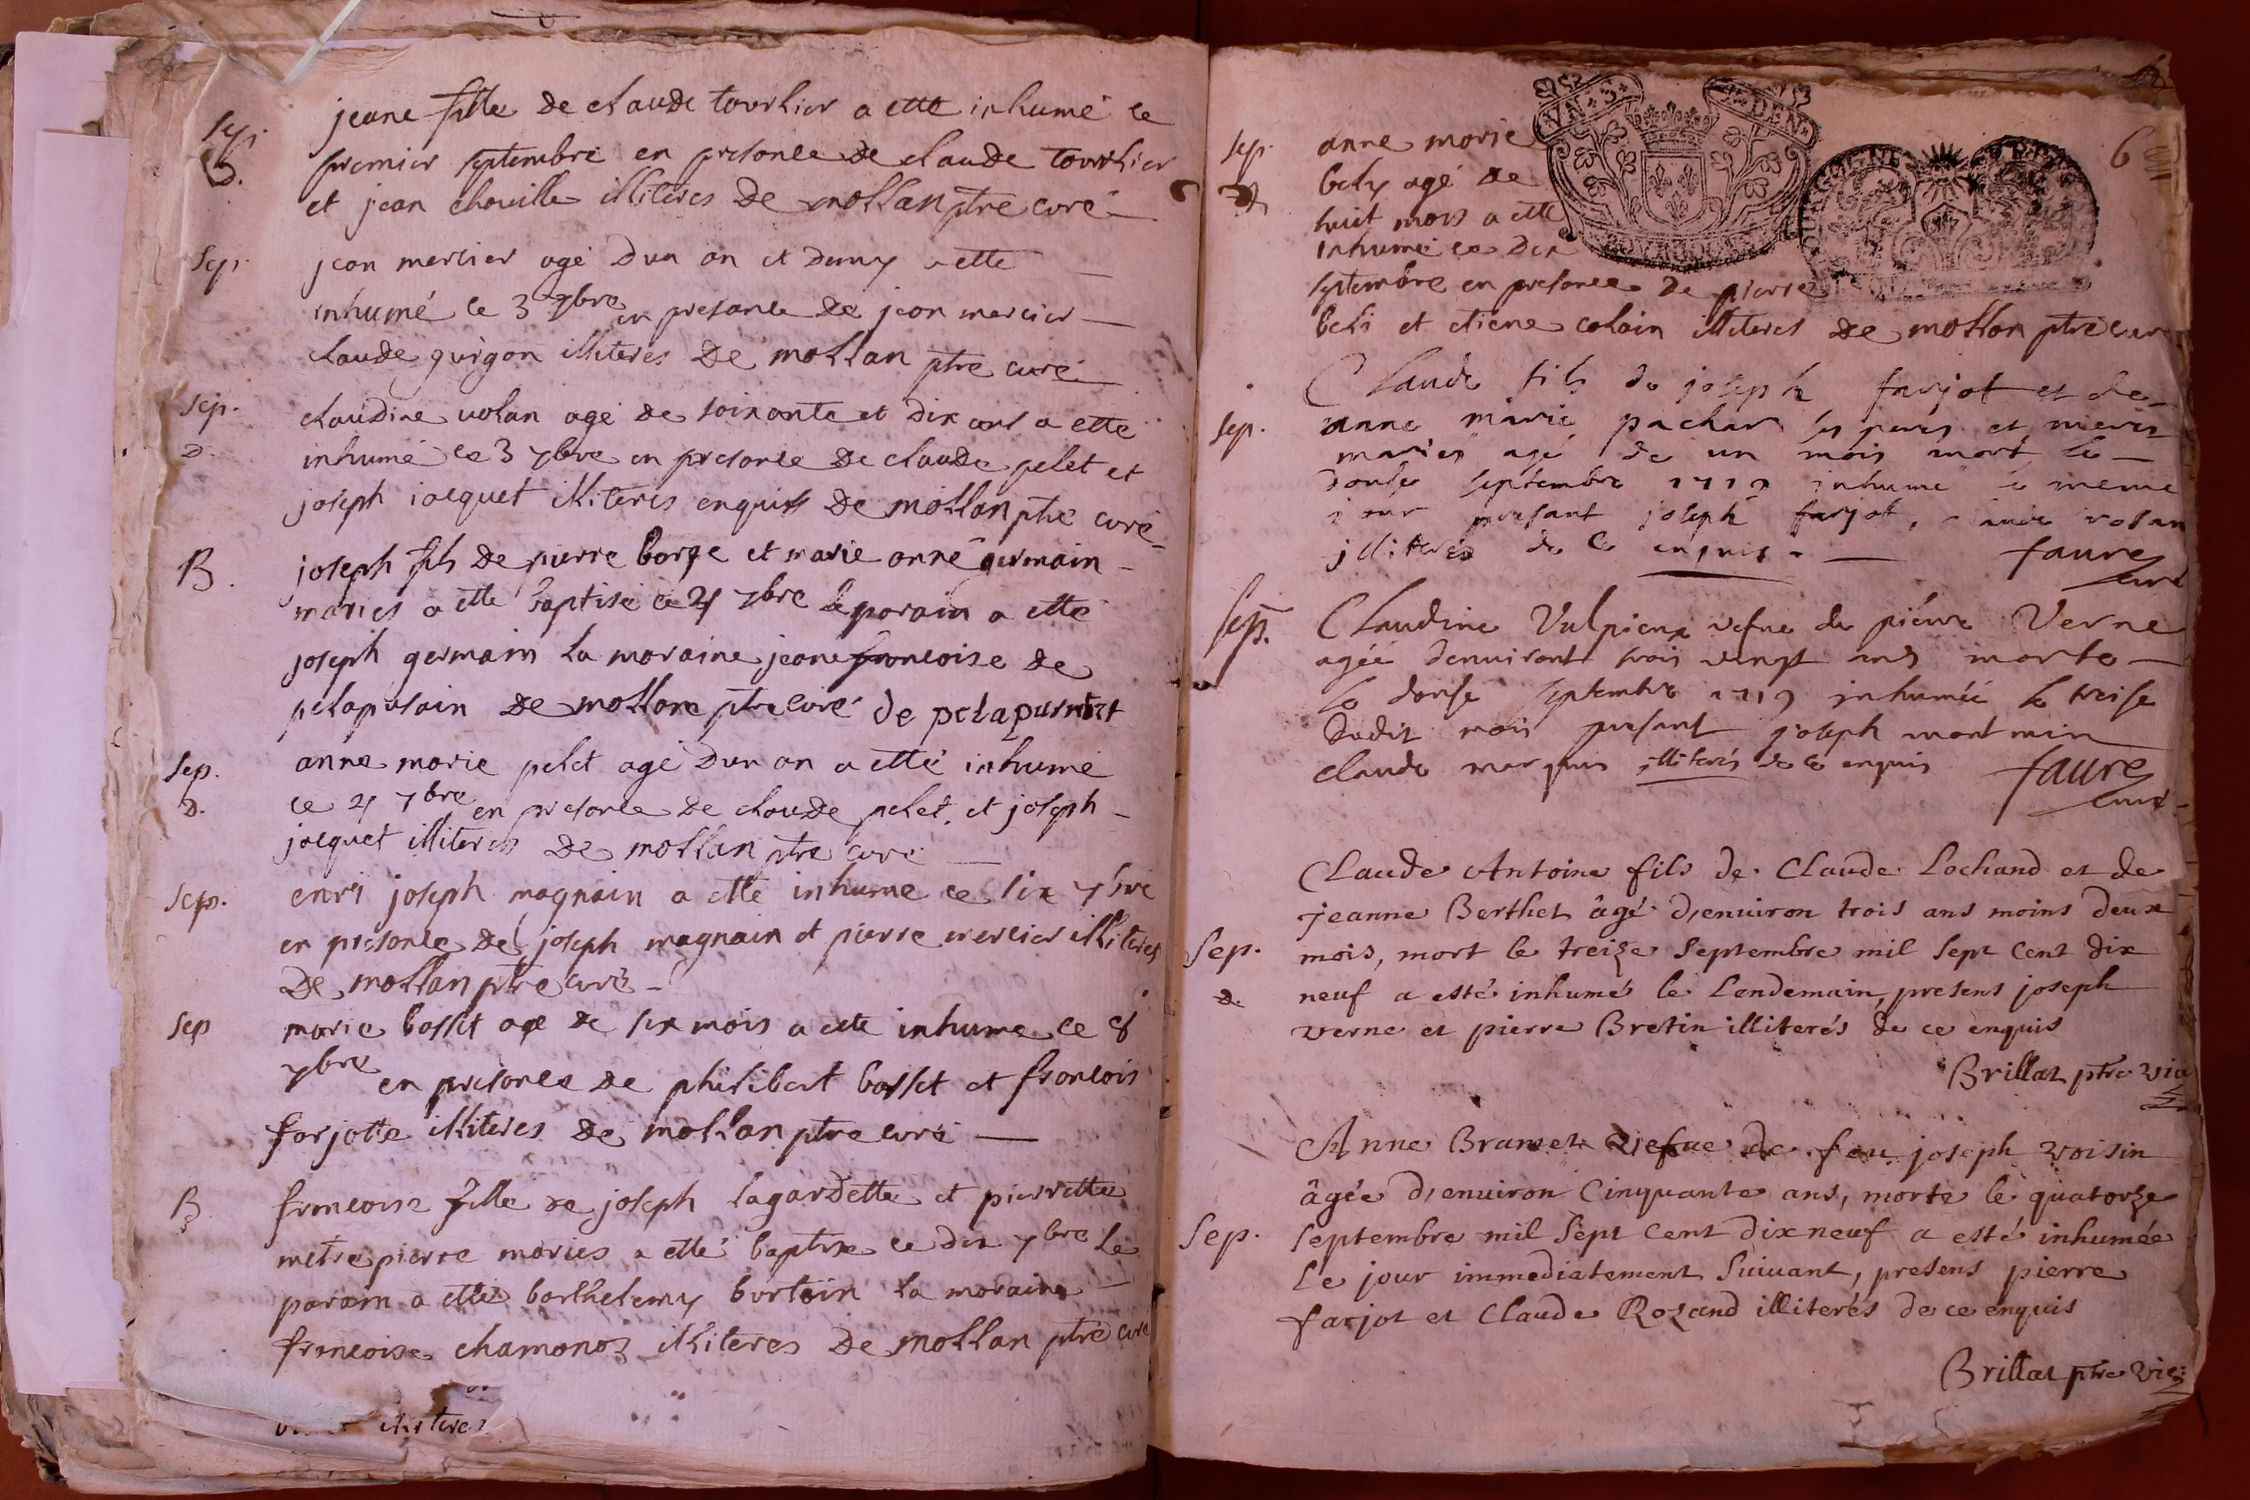 Sep. jeane fille de claude tourlier a etté inhumé le
D. premier septembre en presance de claude tourlier
et jean chouille illiteres De mollan ptre curé
Sep. jean mercier agé Dun an et Demy a etté
inhumé le 3 7bre en presance de jean mercier
claude guigon illiteres De mollan ptre curé
Sep. claudine volan agé de soixante et dix ans a etté
D. inhumé le 3 7bre en presance de claude pelet et
joseph iacquet illiteres enquis De mollan ptre curé
B. joseph fils de pierre borge et marie anne germain
mariés a etté baptisé ce 4 7bre le parain a etté
joseph germain la maraine jeane francoise de
pelapusain De mollan ptre curé de pelapusin
Sep. anne marie pelet agé Dun an a etté inhumé
D. ce 4 7bre en presance de claude pelet et joseph
jacquet illiteres De mollan ptre curé
Sep. enri joseph magnain a etté inhume ce six 7bre
en presance de joseph magnain et pierre mercier illiteres
De mollan ptre curé
Sep marie bosset age de six mois a ette inhume ce 8
7bre en presance de philibert bosset et francois
farjotte illiteres De mollan ptre curé
B francoise fille de joseph lagardette et pierrette
metrepierre mariés a etté baptisé ce dix 7bre le
parain a etté barthelemy burtoin la maraine
francoise chamonoz illiteres De mollan ptre curé
illiteres
6
Sep. anne marie
bely agé de
huit mois a etté
inhumé ce Dix
septembre en presance de pierre
beli et etiene colain illiteres De mollan ptre curé
Claude fils de joseph farjot et de
Sep. anne marie pachar ses peres et meres
mariés agé de un mois mort le
douse septembre 1719 inhumé le meme
jour presant joseph farjot, claude rosan
jlliterés de ce enquis. faure
curé
Sep. Claudine Vulpieux vefue de piérre Verne
agéé denuiront trois vingt ans morte
le douse septembre 1719 inhumée le treise
dudit mois presant joseph montmin
claude marquis illiterés de ce enquis faure
curé
Claude Antoine fils de Claude Lochand et de
jeanne Berthet âgé d'enuiron trois ans moins deux
Sep. mois, mort le treize Septembre mil Sept Cent dix
D. neuf a esté inhumé le Lendemain, presens joseph
verne et pierre Bretin illiterés de ce enquis
Brillat ptre vic
Anne Brunet viefue de feu joseph voisin
âgée d'enuiron Cinquante ans, morte le quatorze
Sep. Septembre mil Sept Cent dix neuf a esté inhumée
Le jour immediatement Suiuant, presens pierre
farjot et Claude Rozand illiterés de ce enquis
Brillat ptre vic